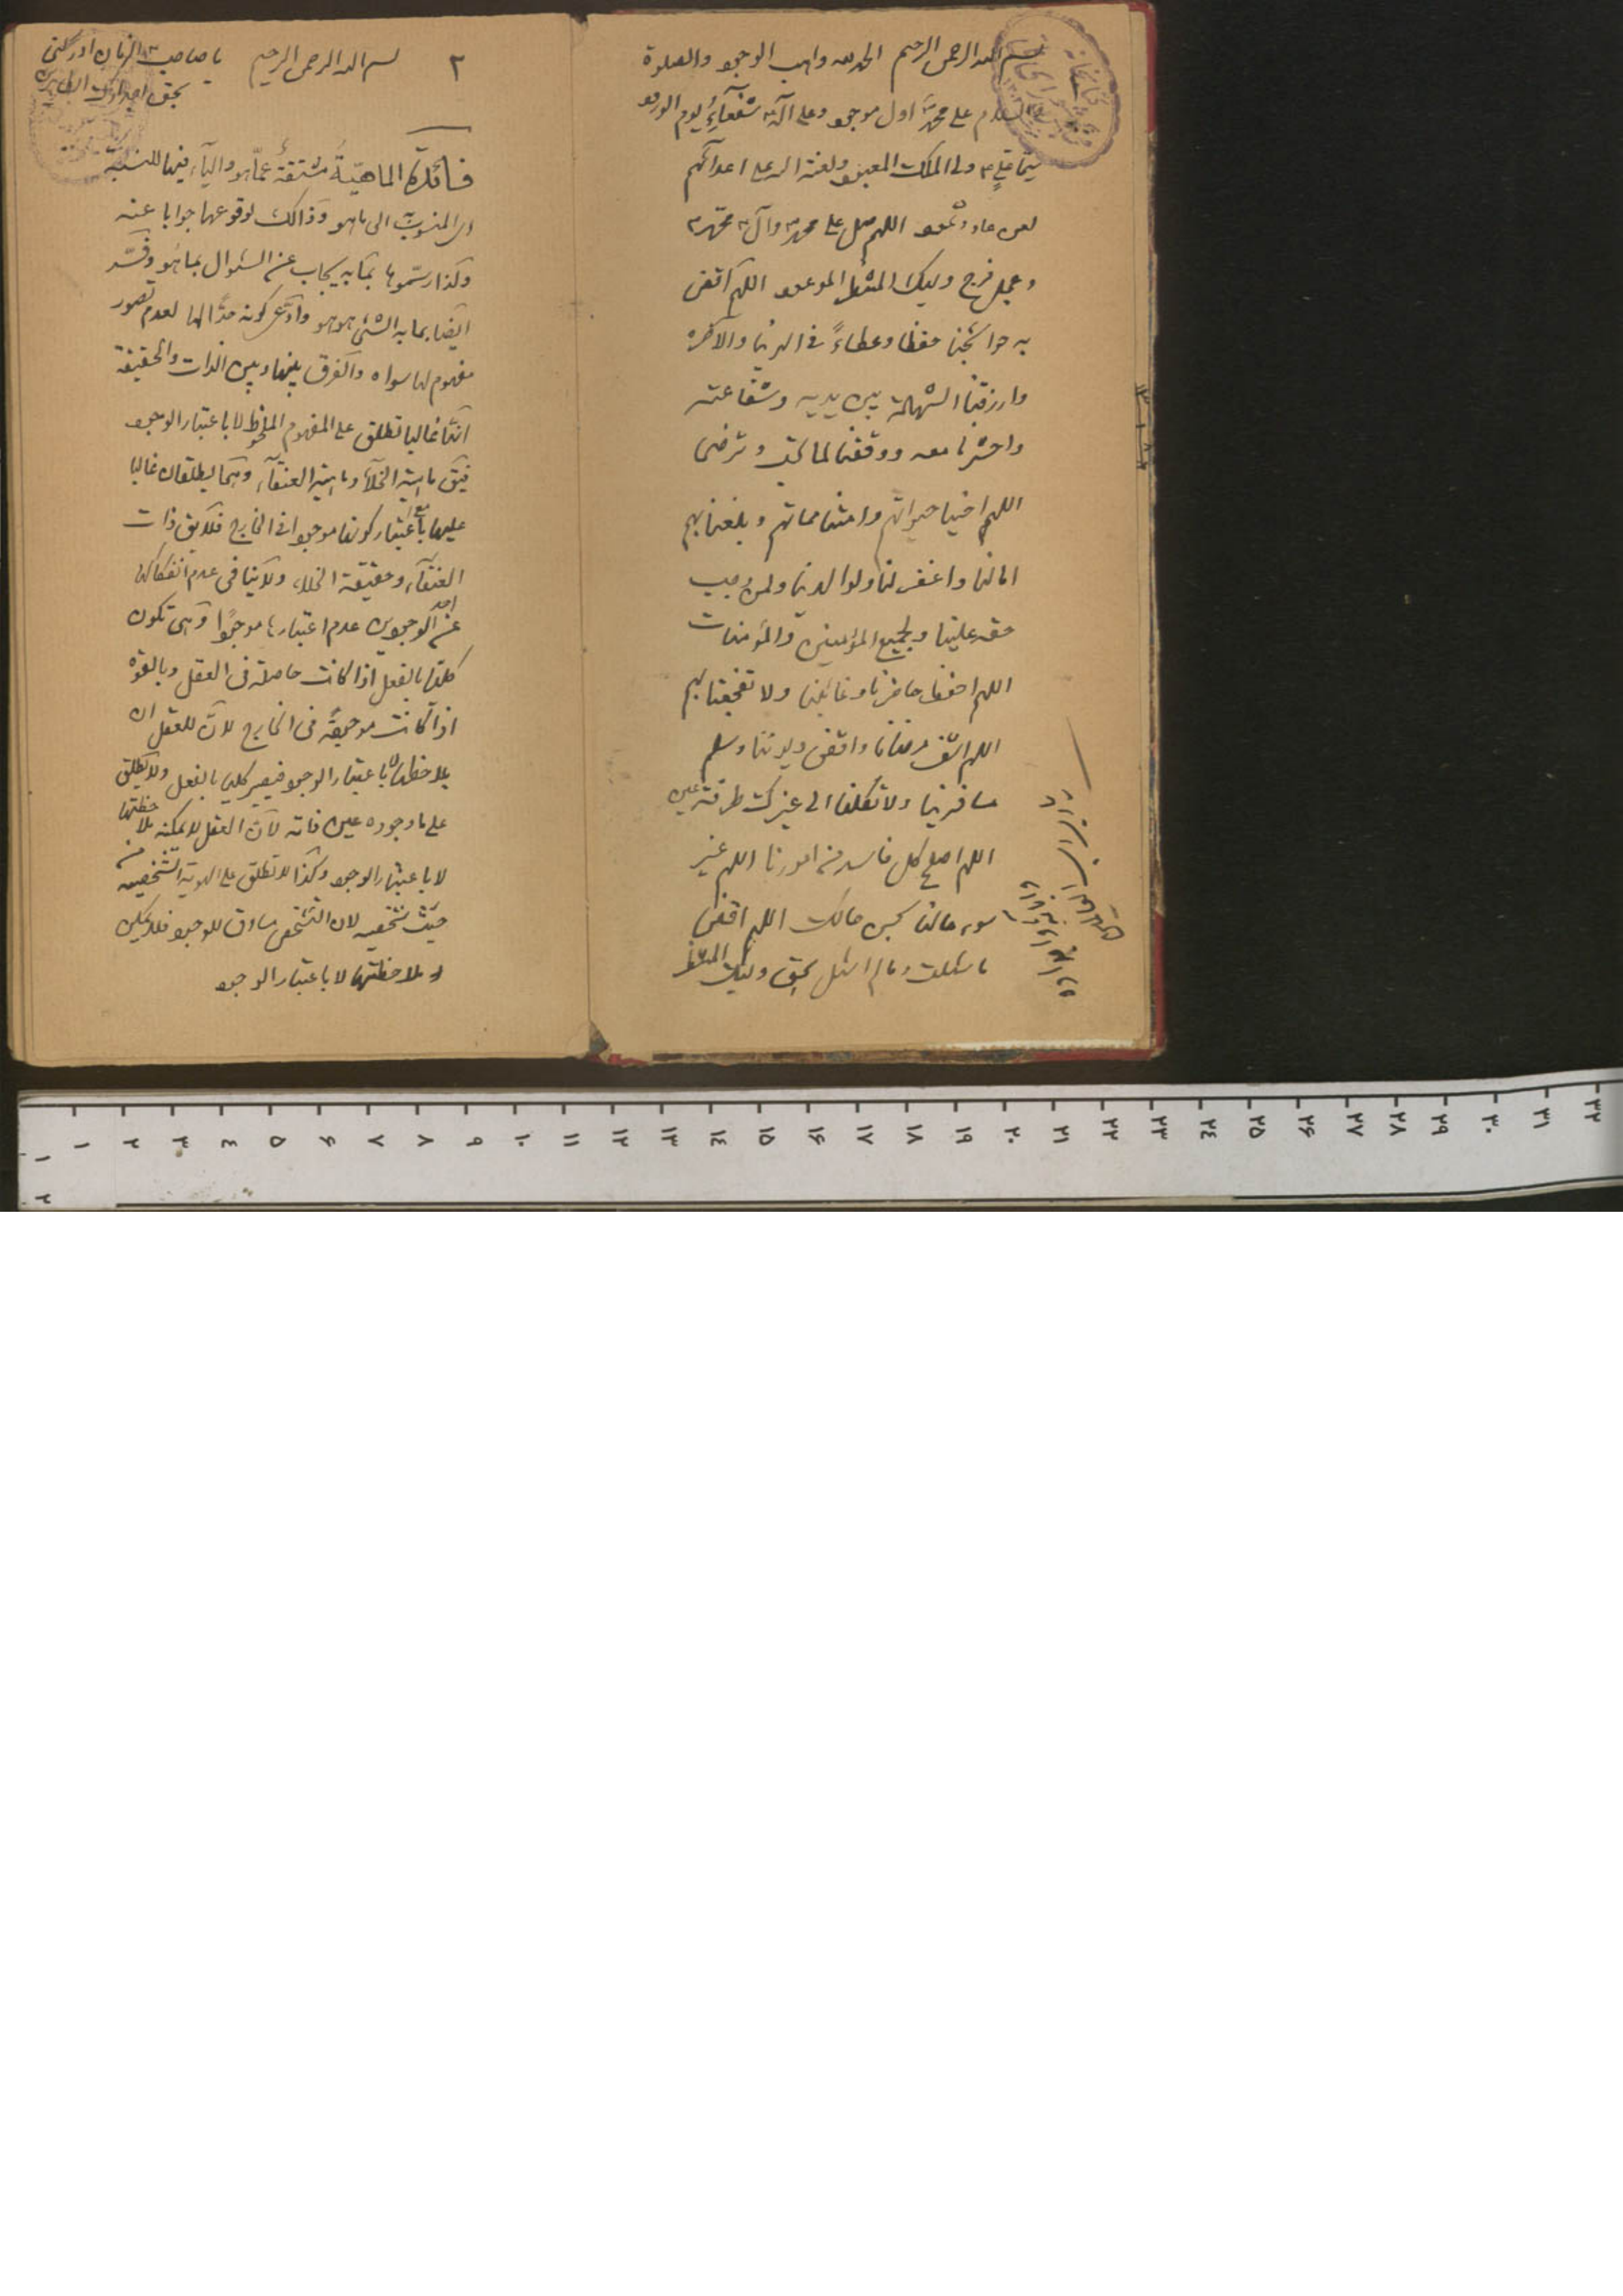 بسم الله الرحمن الرحیم الحمد لله واهب الوجود والصلوة
والسلام علی محمد اول موجود وعلی آله شفعاء یوم الورود
سیما علی ولی الملک المعبود ولعنة الله علی اعدائهم
لعن عاد وثمود اللهم صل علی محمد وآل محمد
وعجل فرج ولیک المنتظر الموعود اللهم اقض
به حوائجنا حفظا وعطاءً فی الدنیا والآخرة
وارزقنا الشهادة بین یدیه وشفاعته
واحشرنا معه ووفقنا لما تحب وترضی
اللهم احینا حیواتهم وامتنا مماتهم وبلغنا بهم
امالنا واغفر لنا ولوالدینا ولمن وجب
حقه علینا ولجمیع المؤمنین والمؤمنات
اللهم احفظ حاضرنا وغائبنا ولا تفجعنا بهم
اللهم اشف مرضانا واقض دیوننا وسلم
مسافرینا ولا تکلنا الی غیرک طرفة عین
اللهم اصلح کل فاسد من امورنا اللهم غیر
سوء حالنا بحسن حالک اللهم اقض
ما سئلت وما لم اسئل بحق ولیک المنتظر
۲ بسم الله الرحمن الرحیم یا صاحب الزمان ادرکنی
بحق اجدادک الطاهرین
فائدة الماهیّة مشتقة عمّا هو والیآء فیها للنسبة
ای المنسوبة الی ما هو وذالک لوقوعها جوابا عنه
وکذا رسّموها بما به یجاب عن السئوال بما هو وفسّر
ایضا بما به الشئ هو هو وادّعی کونه حدًا لها لعدم تصور
مفهوم لها سواه والفرق بینها وبین الذات والحقیقة
انّها غالبا تطلق علی المفهوم الملحوظ لا باعتبار الوجود
فیق ماهیة الخلآء وماهیة العنقآء وهما یطلقان غالبا
علیها باعتبار کونها موجودا فی الخارج فلا یق ذات
العنقآء وحقیقة الخلاء ولا ینافی عدم انفکاکها
عن احد الوجودین عدم اعتبارها موجودًا وهی تکون
کلیة بالفعل اذا کانت حاصلة فی العقل وبالقوة
اذا کانت موجودةً فی الخارج لانّ للعقل ان
یلاحظها لا باعتبار الوجود فیصیر کلیا بالفعل ولا تطلق
علی ما وجوده عین ذاته لانّ العقل لا یمکنه ملاحظتها
لا باعتبار الوجود وکذا لا تطلق علی الهویة الشخصیة من
حیث شخصیه لان التشخص مساوق للوجود فلا یمکن
ملاحظتها لا باعتبار الوجود
۱ ۲ ۳ ٤ ۵ ۶ ۷ ۸ ۹ ۱۰ ۱۱ ۱۲ ۱۳ ۱٤ ۱۵ ۱۶ ۱۷ ۱۸ ۱۹ ۲۰ ۲۱ ۲۲ ۲۳ ۲٤ ۲۵ ۲۶ ۲۷ ۲۸ ۲۹ ۳۰ ۳۱ ۳۲
۱
۲